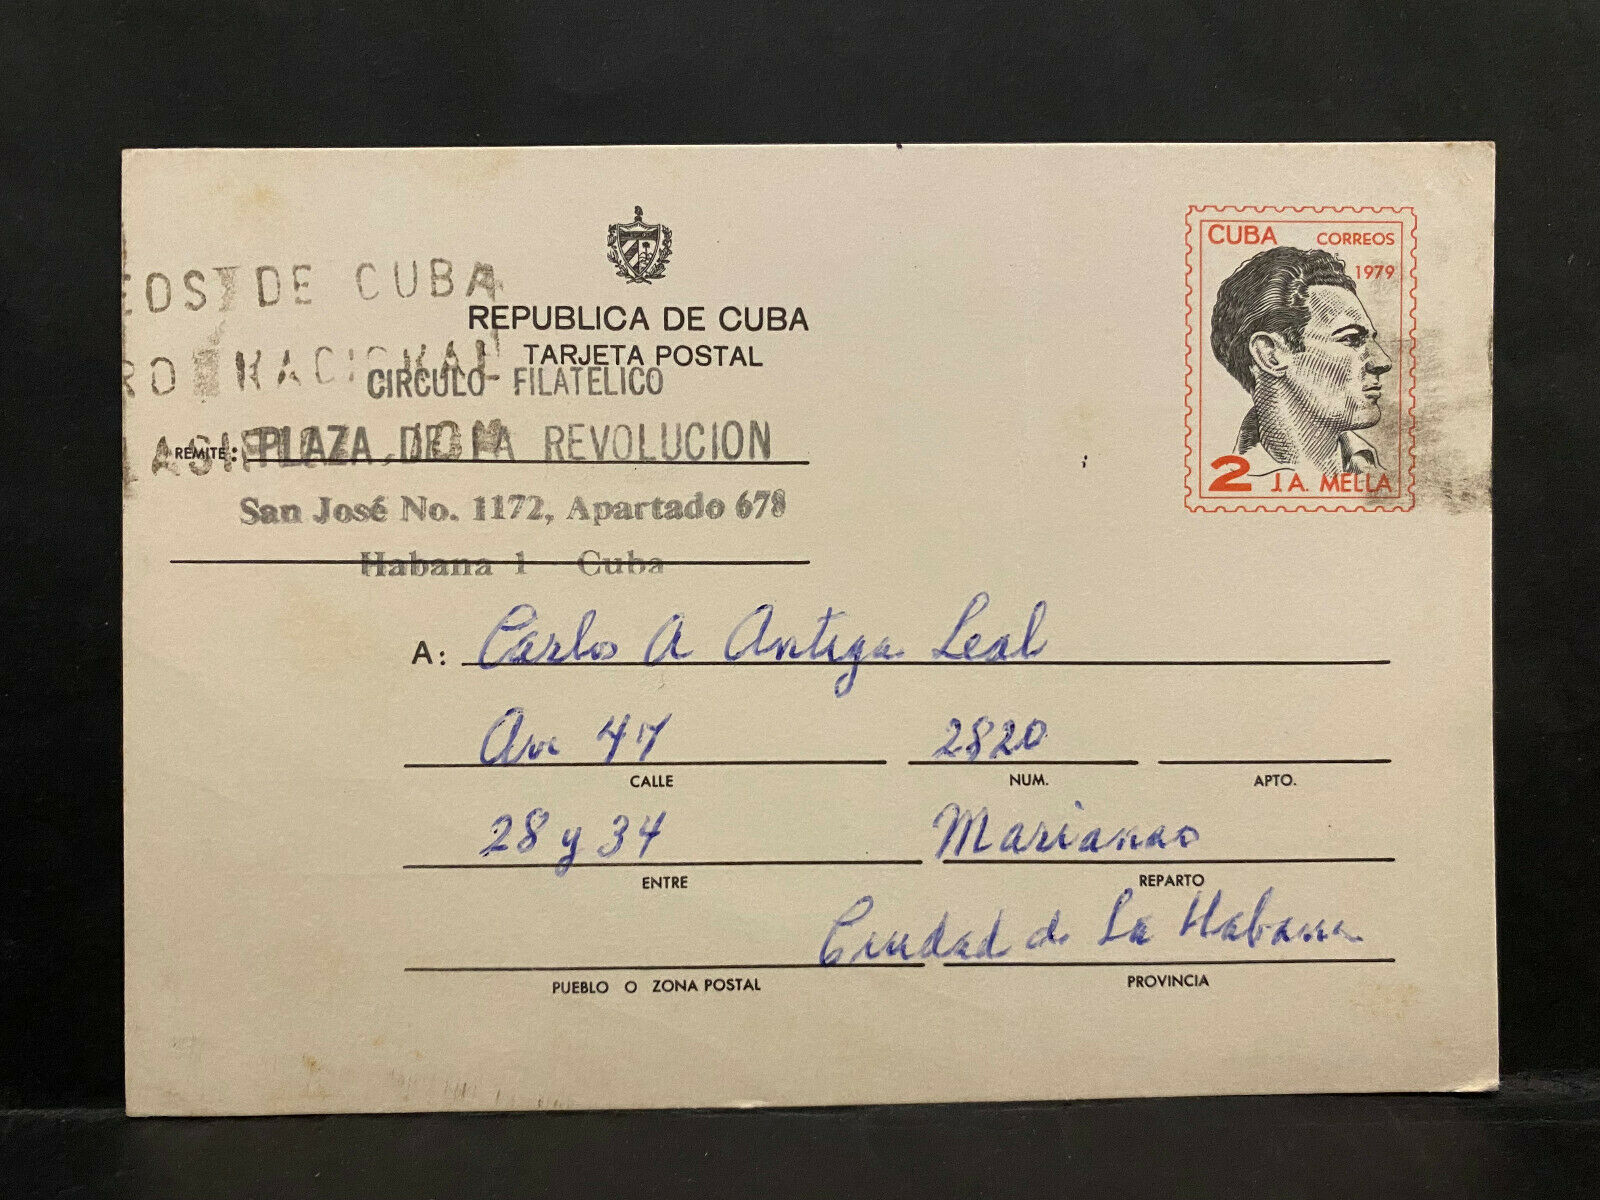 CUBA CORREOS
1979
2 J.A. MELLA
DE CUBA
REPUBLICA DE CUBA
NACIONAL
TARJETA POSTAL
CIRCULO FILATELICO
REMITE: PLAZA DE LA REVOLUCION
San José No. 1172, Apartado 678
Habana 1 - Cuba
A: Carlos A Antiga Leal
Ave 47 2820
CALLE NUM. APTO.
28 y 34 Marianao
ENTRE REPARTO
Ciudad de La Habana
PUEBLO O ZONA POSTAL PROVINCIA